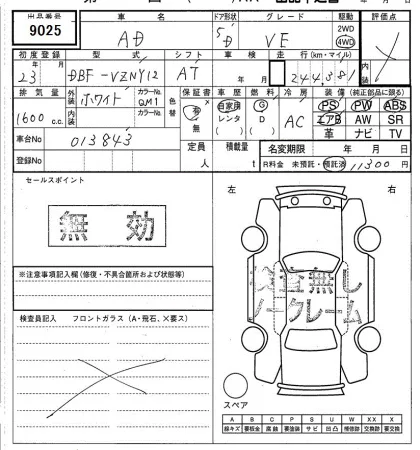 出品番号 車名 ドア形状 グレード 駆動 評価点
9025 AD 5 D VE 2WD 4WD
初度登録 型式 シフト 車検 走行(km・マイル) 内装
23年 月 DBF-VZNY12 AT 年 月 244,381
排気量 外装 カラーNo. 内装 カラーNo. 色替 保証書 車歴 燃料 冷房 装備(純正部品に限る)
1600c.c. ホワイト QM1 有・無 自家用 レンタ ( ) G D ( ) AC PS PW ABS
エアB AW SR
革 ナビ TV
車台No 013843 定員 人 積載量 t 名変期限 年 月 日
登録No. R料金 未預託・預託済 11300円
セールスポイント
左 右
無効
査無し
ノークレーム
※注意事項記入欄(修復・不具合箇所および状態等)
検査員記入 フロントガラス(A・飛石、×要ス)
スペア
A B C P S U W XX X
線キズ 要板金 腐蝕 要塗装 サビ 凹凸 補修跡 交換済 要交換